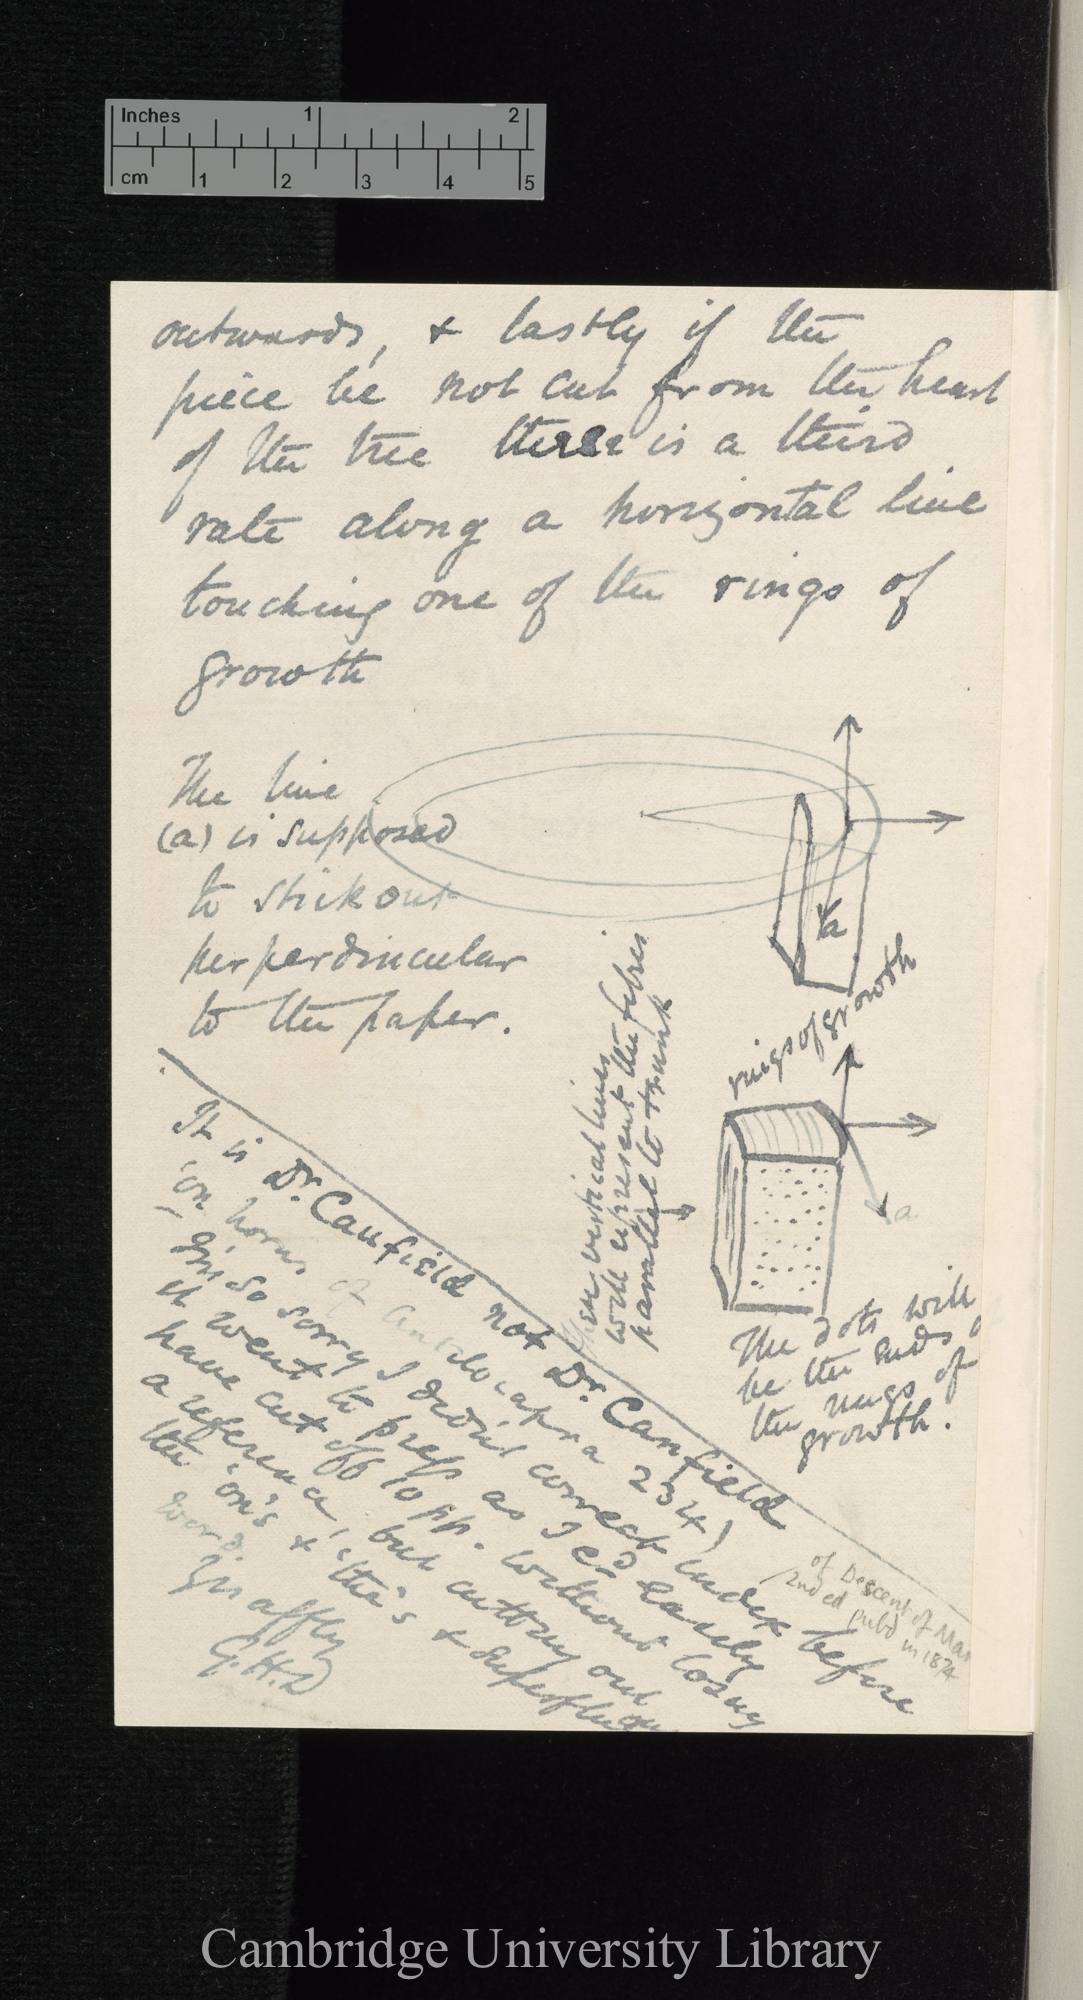 Inches 1 2
cm 1 2 3 4 5
outwards, & lastly if the
piece be not cut from the heart
of the tree there is a third
rate along a horizontal line
touching one of the rings of
growth
The line
(a) is supposed
to stick out
perperdincular
to the paper.
a
rings of growth
a
vertical lines
will represent the fibres
parallel to trunk
The dots will
be the ends
the rings of
growth.
It is Dr. Canfield not Dr. Camfield
'on horns of antilocapra 234)
I'm so sorry I didn't correct index before
it went to press as I cd easily
have cut off 10 pp. without losing
a reference, but cutting out
the 'on's & 'the's &
word.
Yrs affly
G.H.D
of Descent of Man
2nd ed pubd in 1874
Cambridge University Library